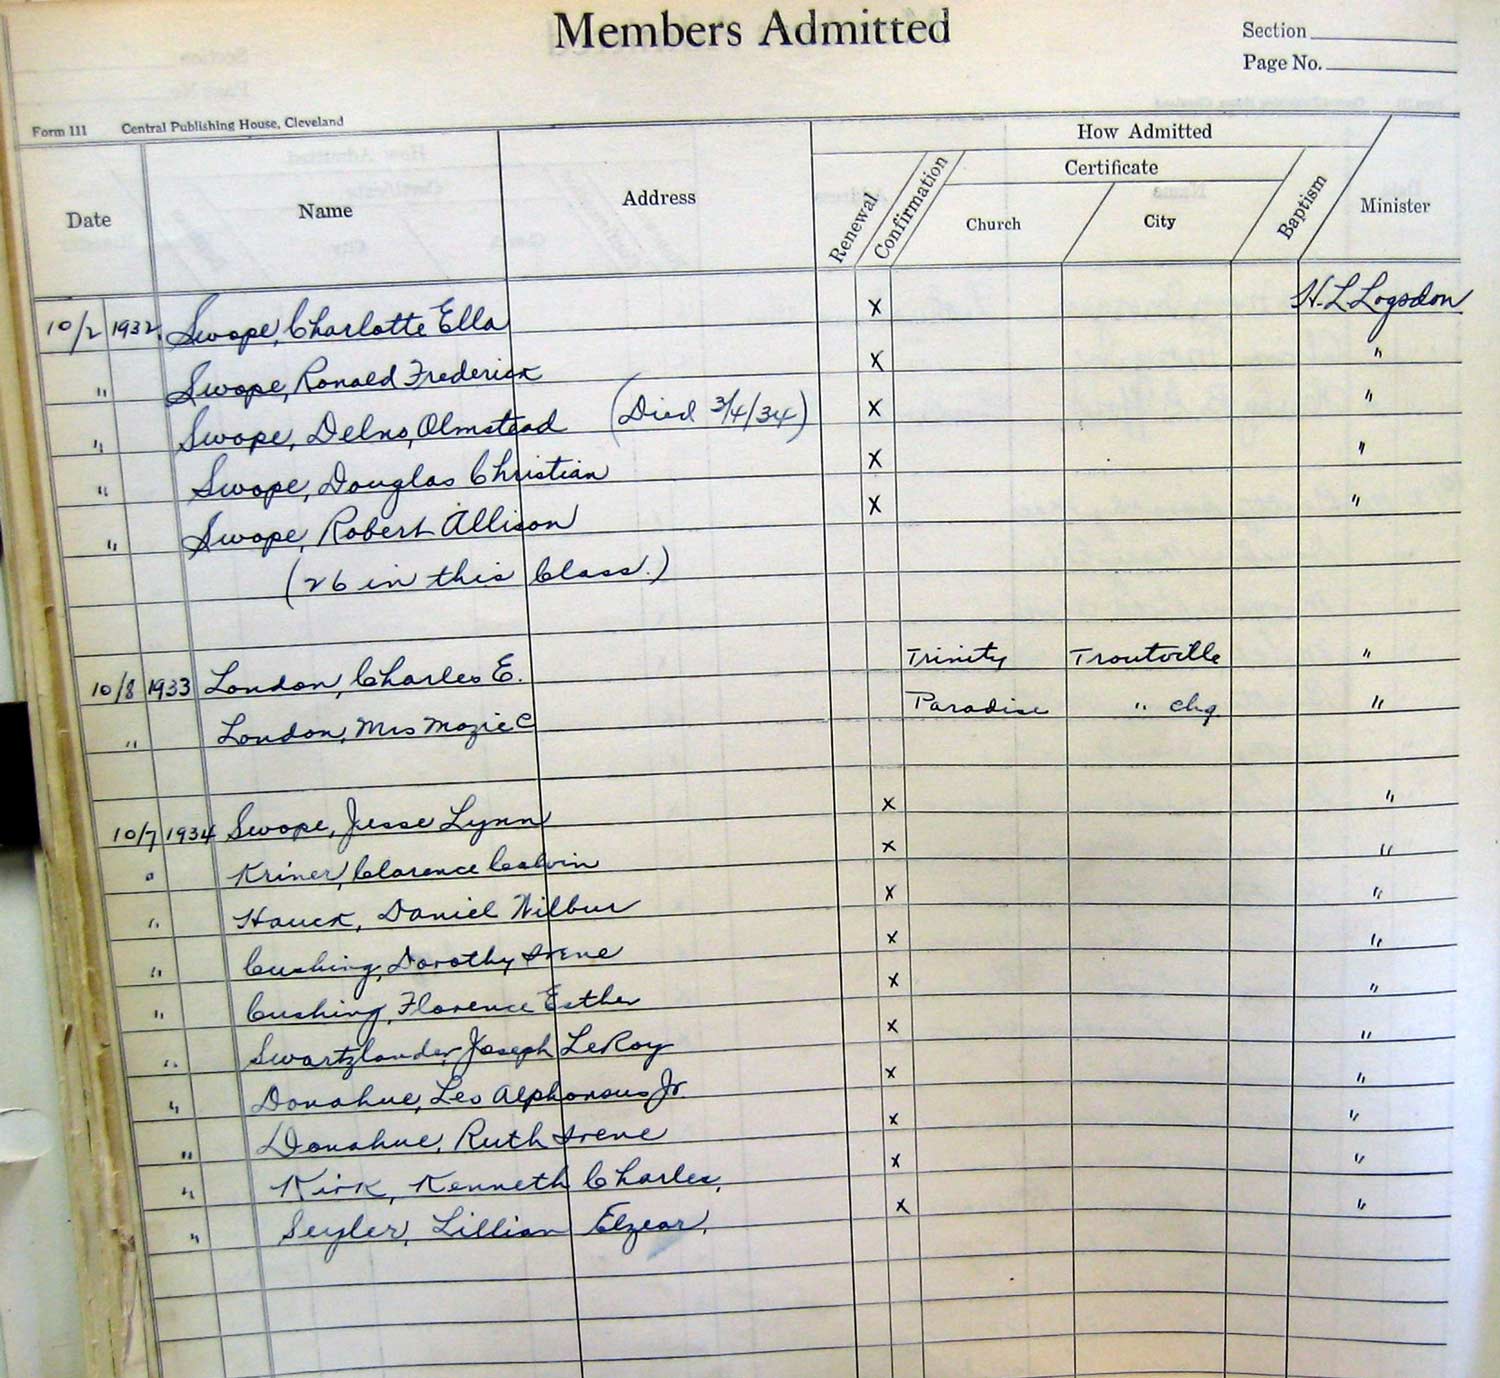 Members Admitted
Section
Page No.
Form 111 Central Publishing House, Cleveland
How Admitted
Certificate
Date Name Address Renewal Confirmation Church City Baptism Minister
10/2 1932 Swope, Charlotte Ella X H. L. Logsdon
" Swope, Ronald Frederick X "
" Swope, Delno Olmstead (Died 3/4/34) X "
" Swope, Douglas Christian X "
" Swope, Robert Allison X "
(26 in this Class.)
10/8 1933 London, Charles E. Trinity Troutville "
" London, Mrs Mozie C Paradise " chg. "
10/7 1934 Swope, Jesse Lynn X "
" Kriner, Clarence Calvin X "
" Hauck, Daniel Wilbur X "
" Cushing, Dorothy Irene X "
" Cushing, Florence Esther X "
" Swartzlander, Joseph LeRoy X "
" Donahue, Leo Alphonsus Jr. X "
" Donahue, Ruth Irene X "
" Kirk, Kenneth Charles, X "
" Seyler, Lillian Elzear, X "